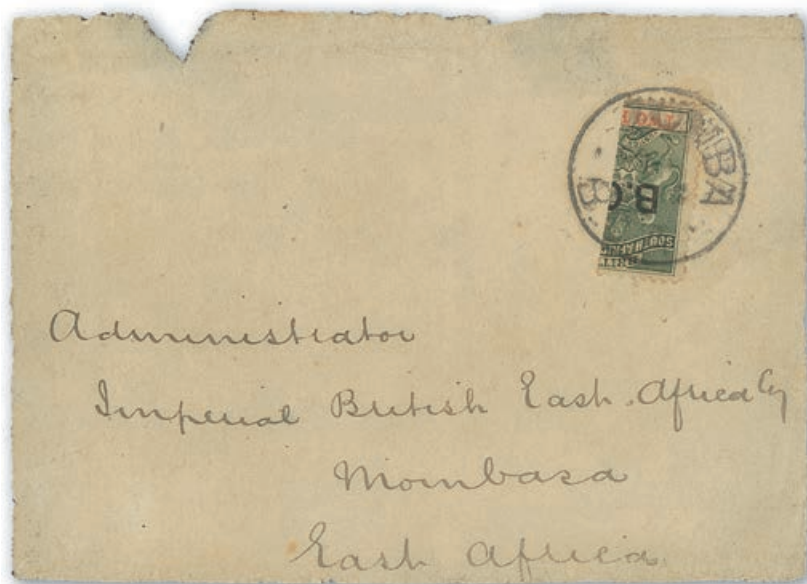 MBA
B.C
B
SOUTH AFRI
Administrator
Imperial British East Africa Cy
Mombasa
East Africa